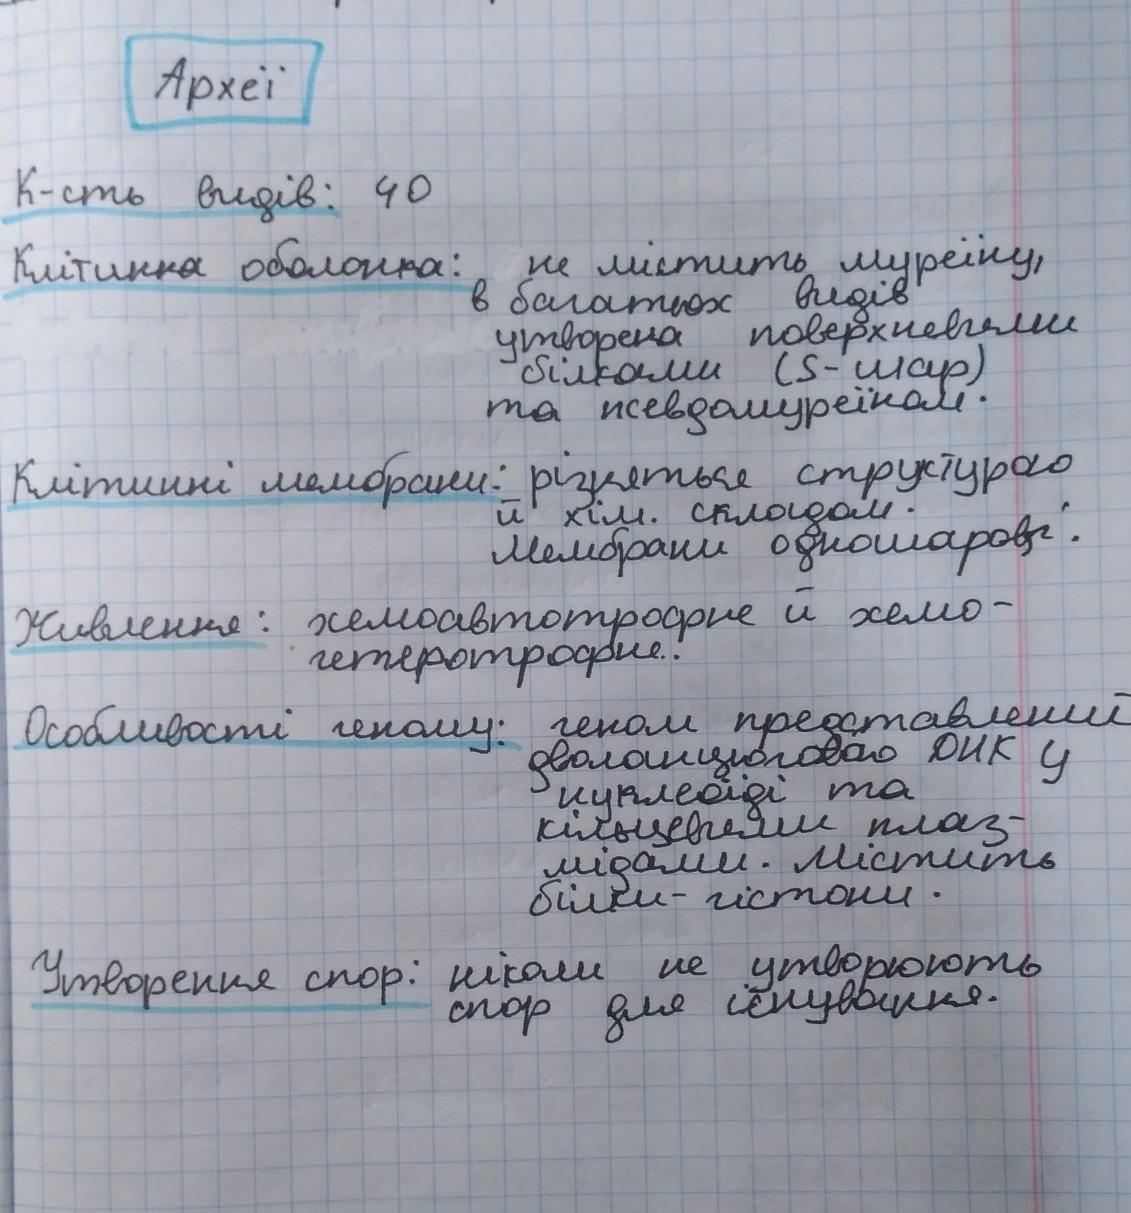 Археї
К-сть видів: 40
Клітинна оболонка: не містить муреїну,
в багатьох видів
утворена поверхневими
білками (S-шар)
та псевдомуреїном.
Клітинні мембрани: різняться структурою
й хім. складом.
Мембрани одношарові.
Живлення: хемоавтотрофне й хемо-
гетеротрофне.
Особливості геному: геном представлений
дволанцюговою ДНК у
нуклеоїді та
кільцевими плаз-
мідами. Містить
білки-гістони.
Утворення спор: ніколи не утворюють
спор для існування.